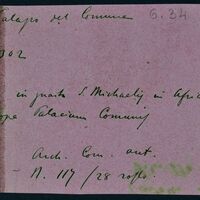 alazo del Comune G.34
302
in guaita S. Michaelis in Afric
ope Palacium Comunis
Arch. Com. ant.
- N. 117 / 28 rosso